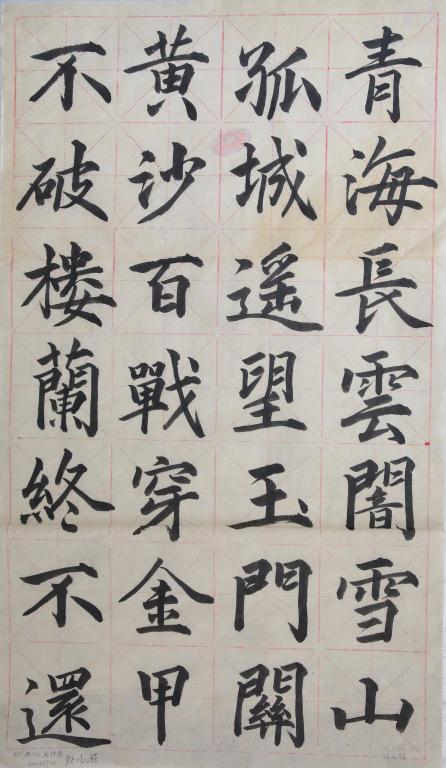 青海長雲闇雪山
孤城遥望玉門關
黃沙百戰穿金甲
不破樓蘭終不還